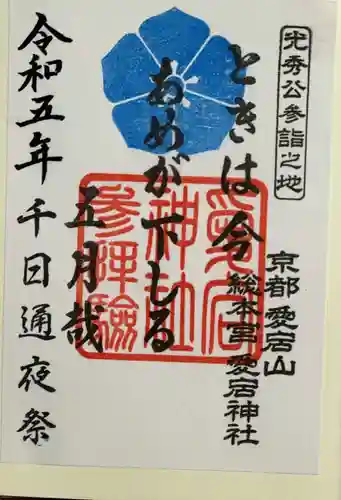 光秀公参詣之地
京都 愛宕山
総本宮 愛宕神社
ときは今
あめが下しる
五月哉
愛宕
神社
参拝
令和五年 千日通夜祭